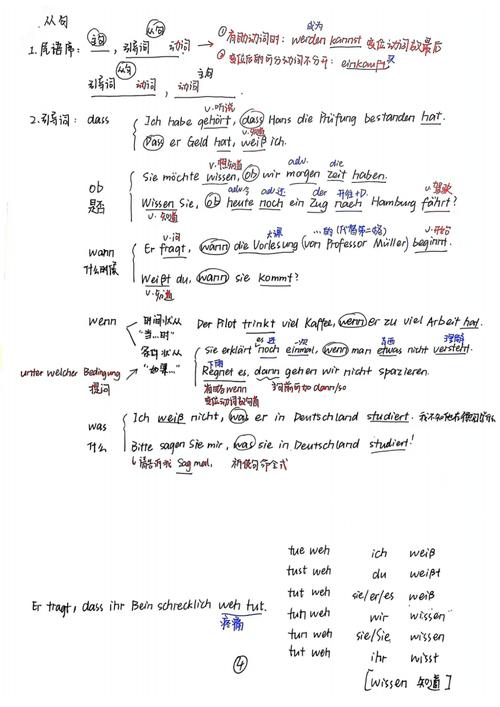 从句
1. 尾语序: 主句, 引导词 从句 动词 → ① 有助动词时: werden kannst 变位动词放最后
成为
② 变位后的可分动词不分开: einkauft 买
引导词 从句 动词, 动词 主句
v.听说
2.引导词: dass Ich habe gehört, dass Hans die Prüfung bestanden hat.
Dass er Geld hat, weiß ich.
v.知道
v.想知道 adv. die
ob 是否 Sie möchte wissen, ob wir morgen Zeit haben.
adv.今 adv.还 der 开往+D. v.驾驶
Wissen Sie, ob heute noch ein Zug nach Hamburg fährt?
v.知道
v.问 大课 ...的(代替第二格) v.开始
wann Er fragt, wann die Vorlesung (von Professor Müller) beginnt.
什么时候
Weißt du, wann sie kommt?
v.知道
wenn 时间状从 "当...时" Der Pilot trinkt viel Kaffee, wenn er zu viel Arbeit hat.
还 一次 东西 理解
条件状从 "如果..." Sie erklärt es noch einmal, wenn man etwas nicht versteht.
unter welcher Bedingung 提问
下雨
Regnet es, dann gehen wir nicht spazieren.
省略wenn 主句前可加dann/so
变位动词放句首
was 什么 Ich weiß nicht, was er in Deutschland studiert.
Bitte sagen Sie mir, was sie in Deutschland studiert!
请告诉我 Sag mal, 祈使句命令式
tue weh ich weiß
tust weh du weißt
tut weh sie/er/es weiß
Er fragt, dass ihr Bein schrecklich weh tut. tun weh wir wissen
疼痛 tun weh sie/Sie wissen
tut weh ihr wisst
④
[wissen 知道]